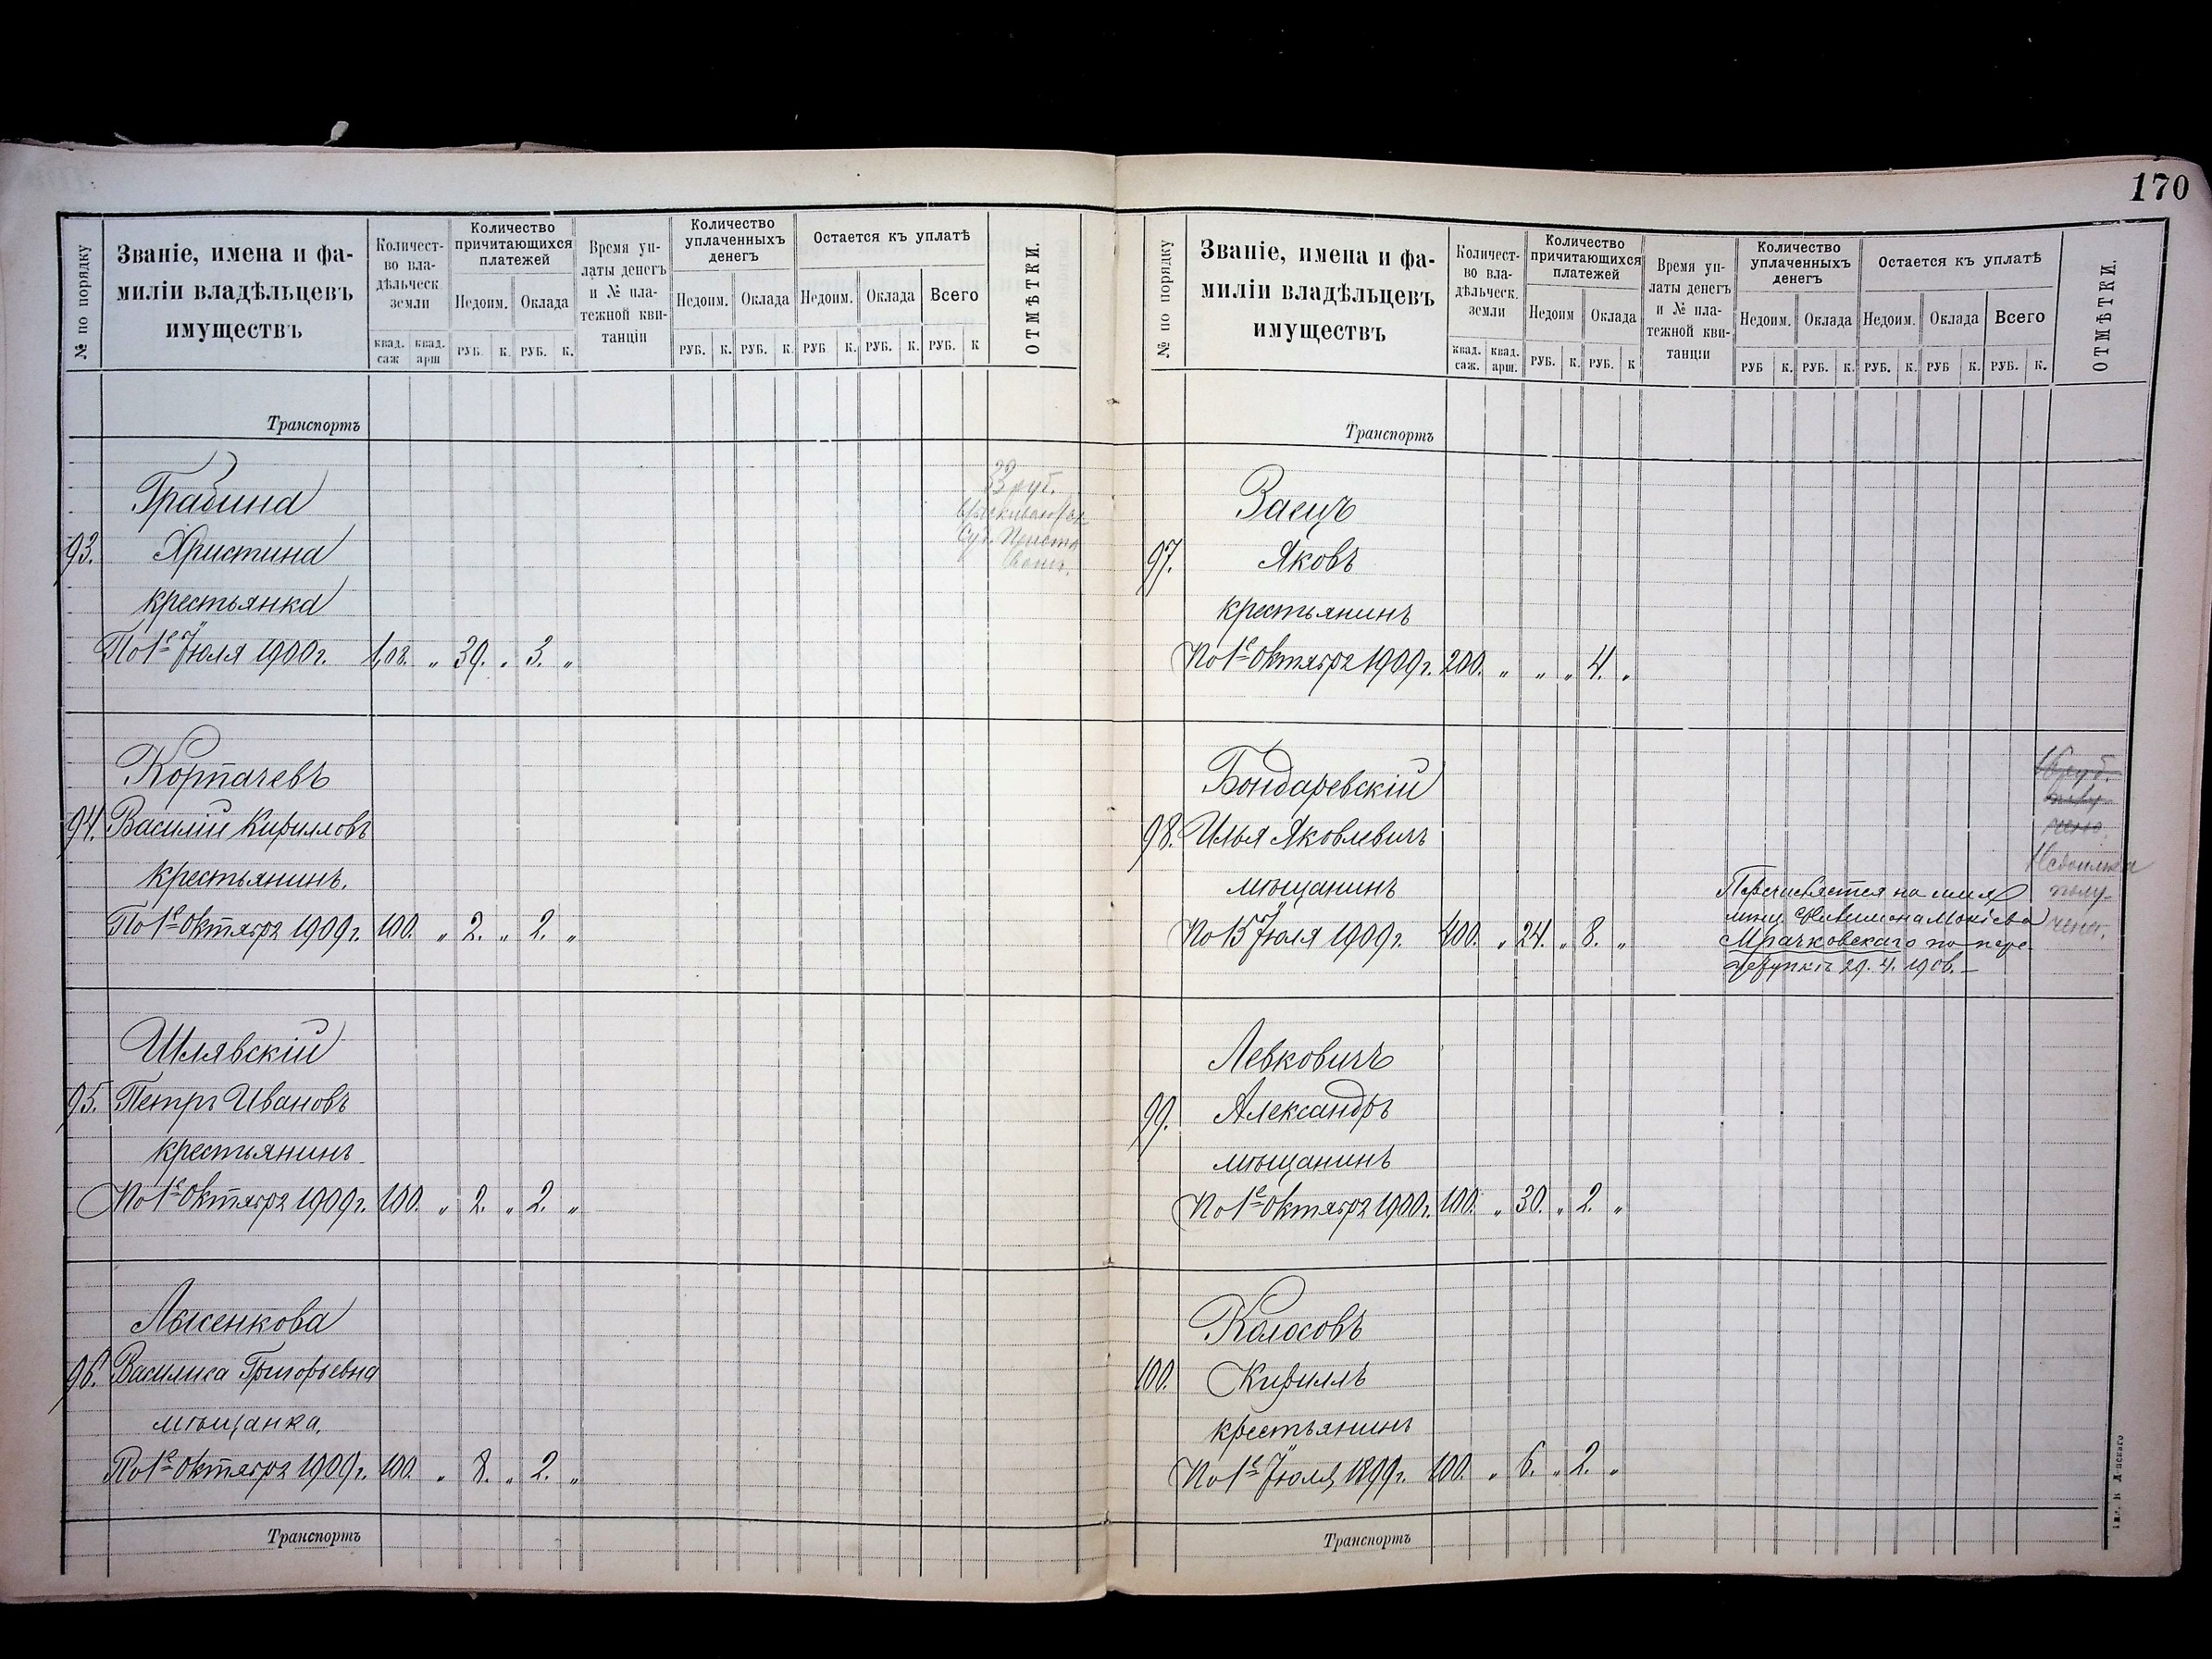 170
№ по порядку
Званіе, имена и фа-
миліи владѣльцевъ
имуществъ
Количест-
во вла-
дѣльческ.
земли
квад. саж. квад. арш.
Количество
причитающихся
платежей
Недоим. Оклада
РУБ. К. РУБ. К.
Время уп-
латы денегъ
и № пла-
тежной кви-
танціи
Количество
уплаченныхъ
денегъ
Недоим. Оклада
РУБ. К. РУБ. К.
Остается къ уплатѣ
Недоим. Оклада Всего
РУБ К. РУБ. К. РУБ. К
ОТМѢТКИ.
Транспортъ
Грабина
93. Христина
крестьянка
По 1е Юля 1900 г. 1,08. „ 39. „ 3. „
33 руб.
Корпачевъ
94. Василій Кирилловъ
крестьянинъ.
По 1е Октября 1909 г. 100. „ 2. „ 2. „
Шлявскій
95. Петръ Ивановъ
крестьянинъ
По 1е Октября 1909 г. 100. „ 2. „ 2. „
Лысенкова
96. Василиса Григорьевна
мѣщанка.
По 1е Октября 1909 г. 100. „ 8. „ 2. „
Транспортъ
№ по порядку
Званіе, имена и фа-
миліи владѣльцевъ
имуществъ
Количест-
во вла-
дѣльческ.
земли
квад. саж. квад. арш.
Количество
причитающихся
платежей
Недоим Оклада
РУБ. К. РУБ. К
Время уп-
латы денегъ
и № пла-
тежной кви-
танціи
Количество
уплаченныхъ
денегъ
Недоим. Оклада
РУБ К. РУБ. К.
Остается къ уплатѣ
Недоим. Оклада Всего
РУБ. К. РУБ К. РУБ. К.
ОТМѢТКИ.
Транспортъ
Заецъ
97. Яковъ
крестьянинъ
По 1е Октября 1909 г. 200. „ „ „ 4. „
Бондаревскій
98. Илья Яковлевичъ
мѣщанинъ
По 15 Юля 1909 г. 400. „ 24. „ 8. „
Перечисляется на имя
мѣщ. Мокіева
Мрачковскаго по пере-
уступкѣ 29. 4. 1906.
Недоимка
полу-
чена.
Левковичъ
99. Александръ
мѣщанинъ
По 1е Октября 1900 г. 100. „ 30. „ 2. „
Колосовъ
100. Кириллъ
крестьянинъ
По 1е Юля 1899 г. 100. „ 6. „ 2. „
Транспортъ